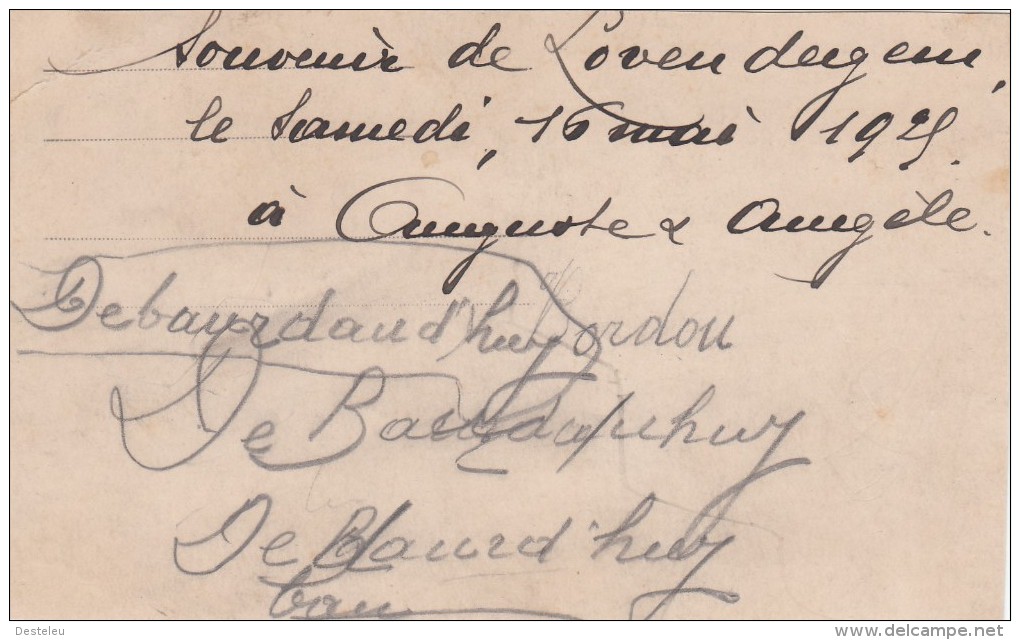 Souvenir de Lovendegem,
le Samedi, 16 mai 1925.
à Auguste & Angèle.
Debaurdaud'huy Bordou
De Baurdauhuy
De Baurd'huy
Desteleu
www.delcampe.net